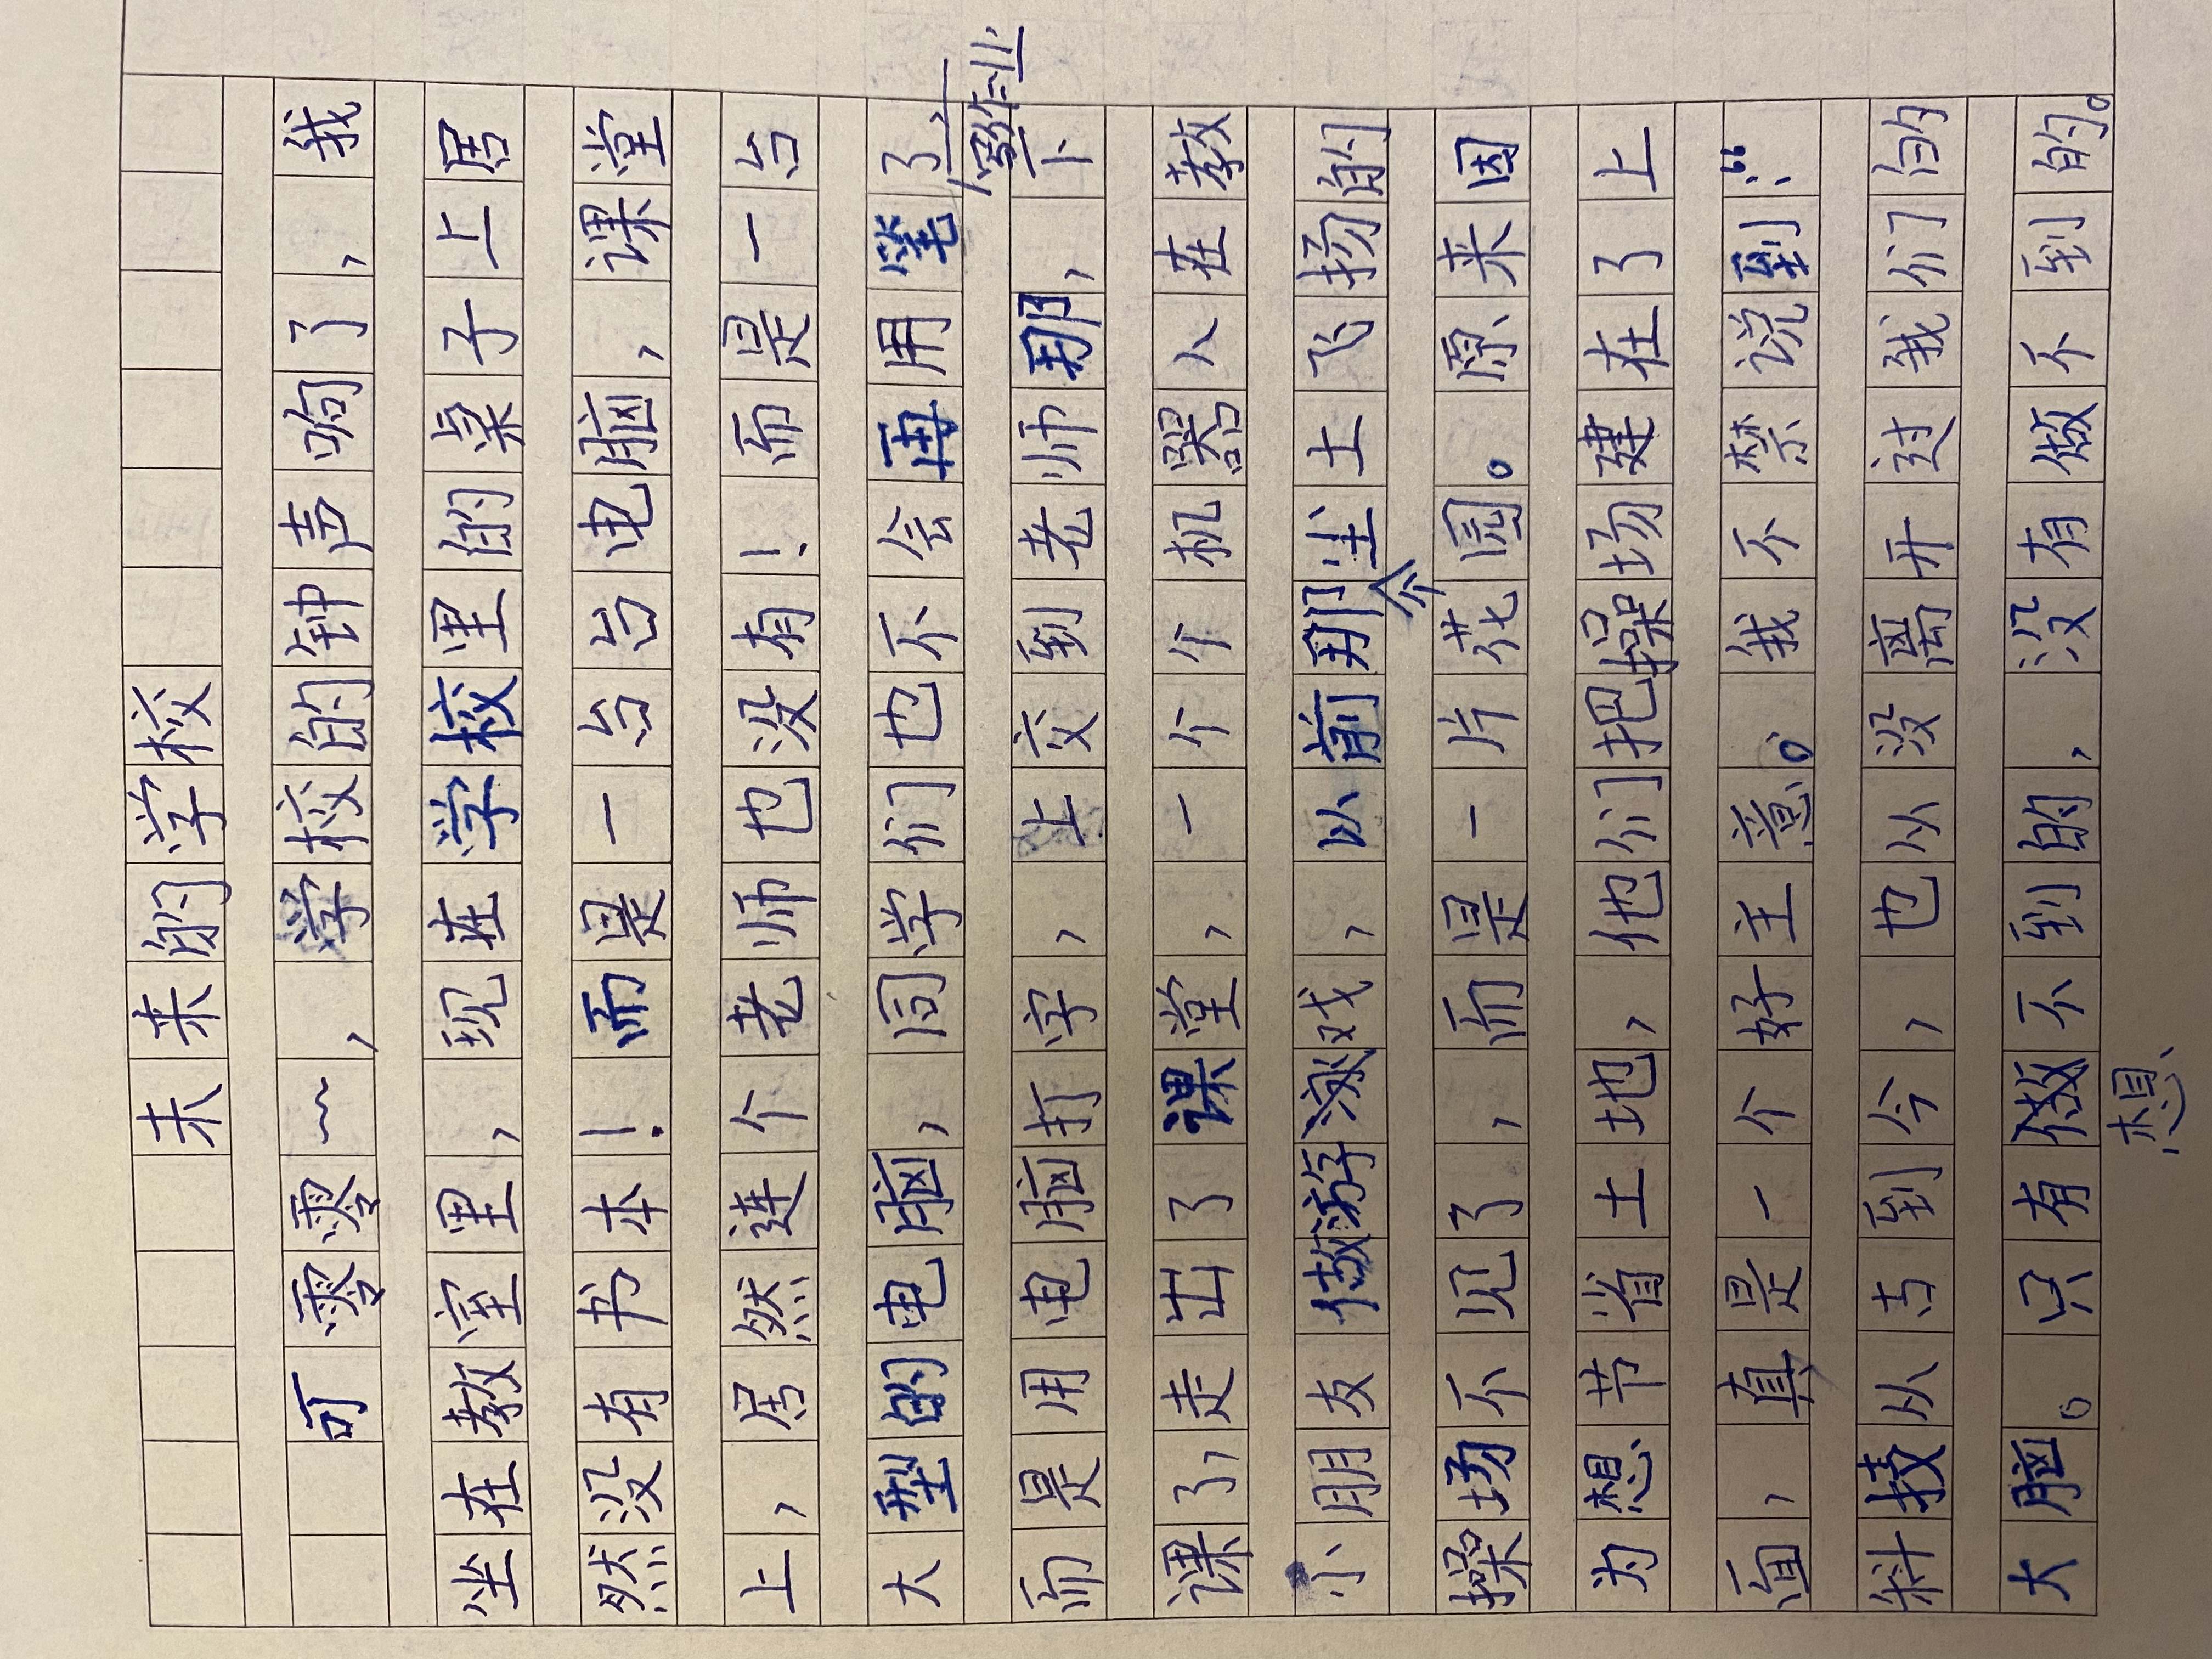 未来的学校
叮零零~,学校的钟声响了,我
坐在教室里,现在学校里的桌子上居
然没有书本!而是一台台电脑,课堂
上,居然连个老师也没有!而是一台
大型的电脑,同学们也不会再用笔了,写作业
而是用电脑打字,上交到老师那,下
课了,走出了课堂,一个个机器人在教
小朋友做游戏,以前那尘土飞扬的
操场不见了,而是一片花园。原来因
为想节省土地,他们把操场建在了上
面,真是一个好主意。我不禁说到:“
科技从古到今,也从没离开过我们的
大脑。只有做不到的,没有做不到的。
想